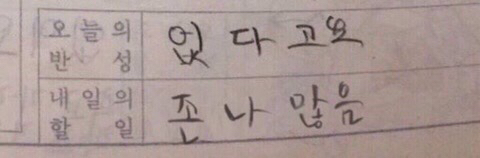 오늘의 없다고요
반 성
내일의 존나 많음
할 일